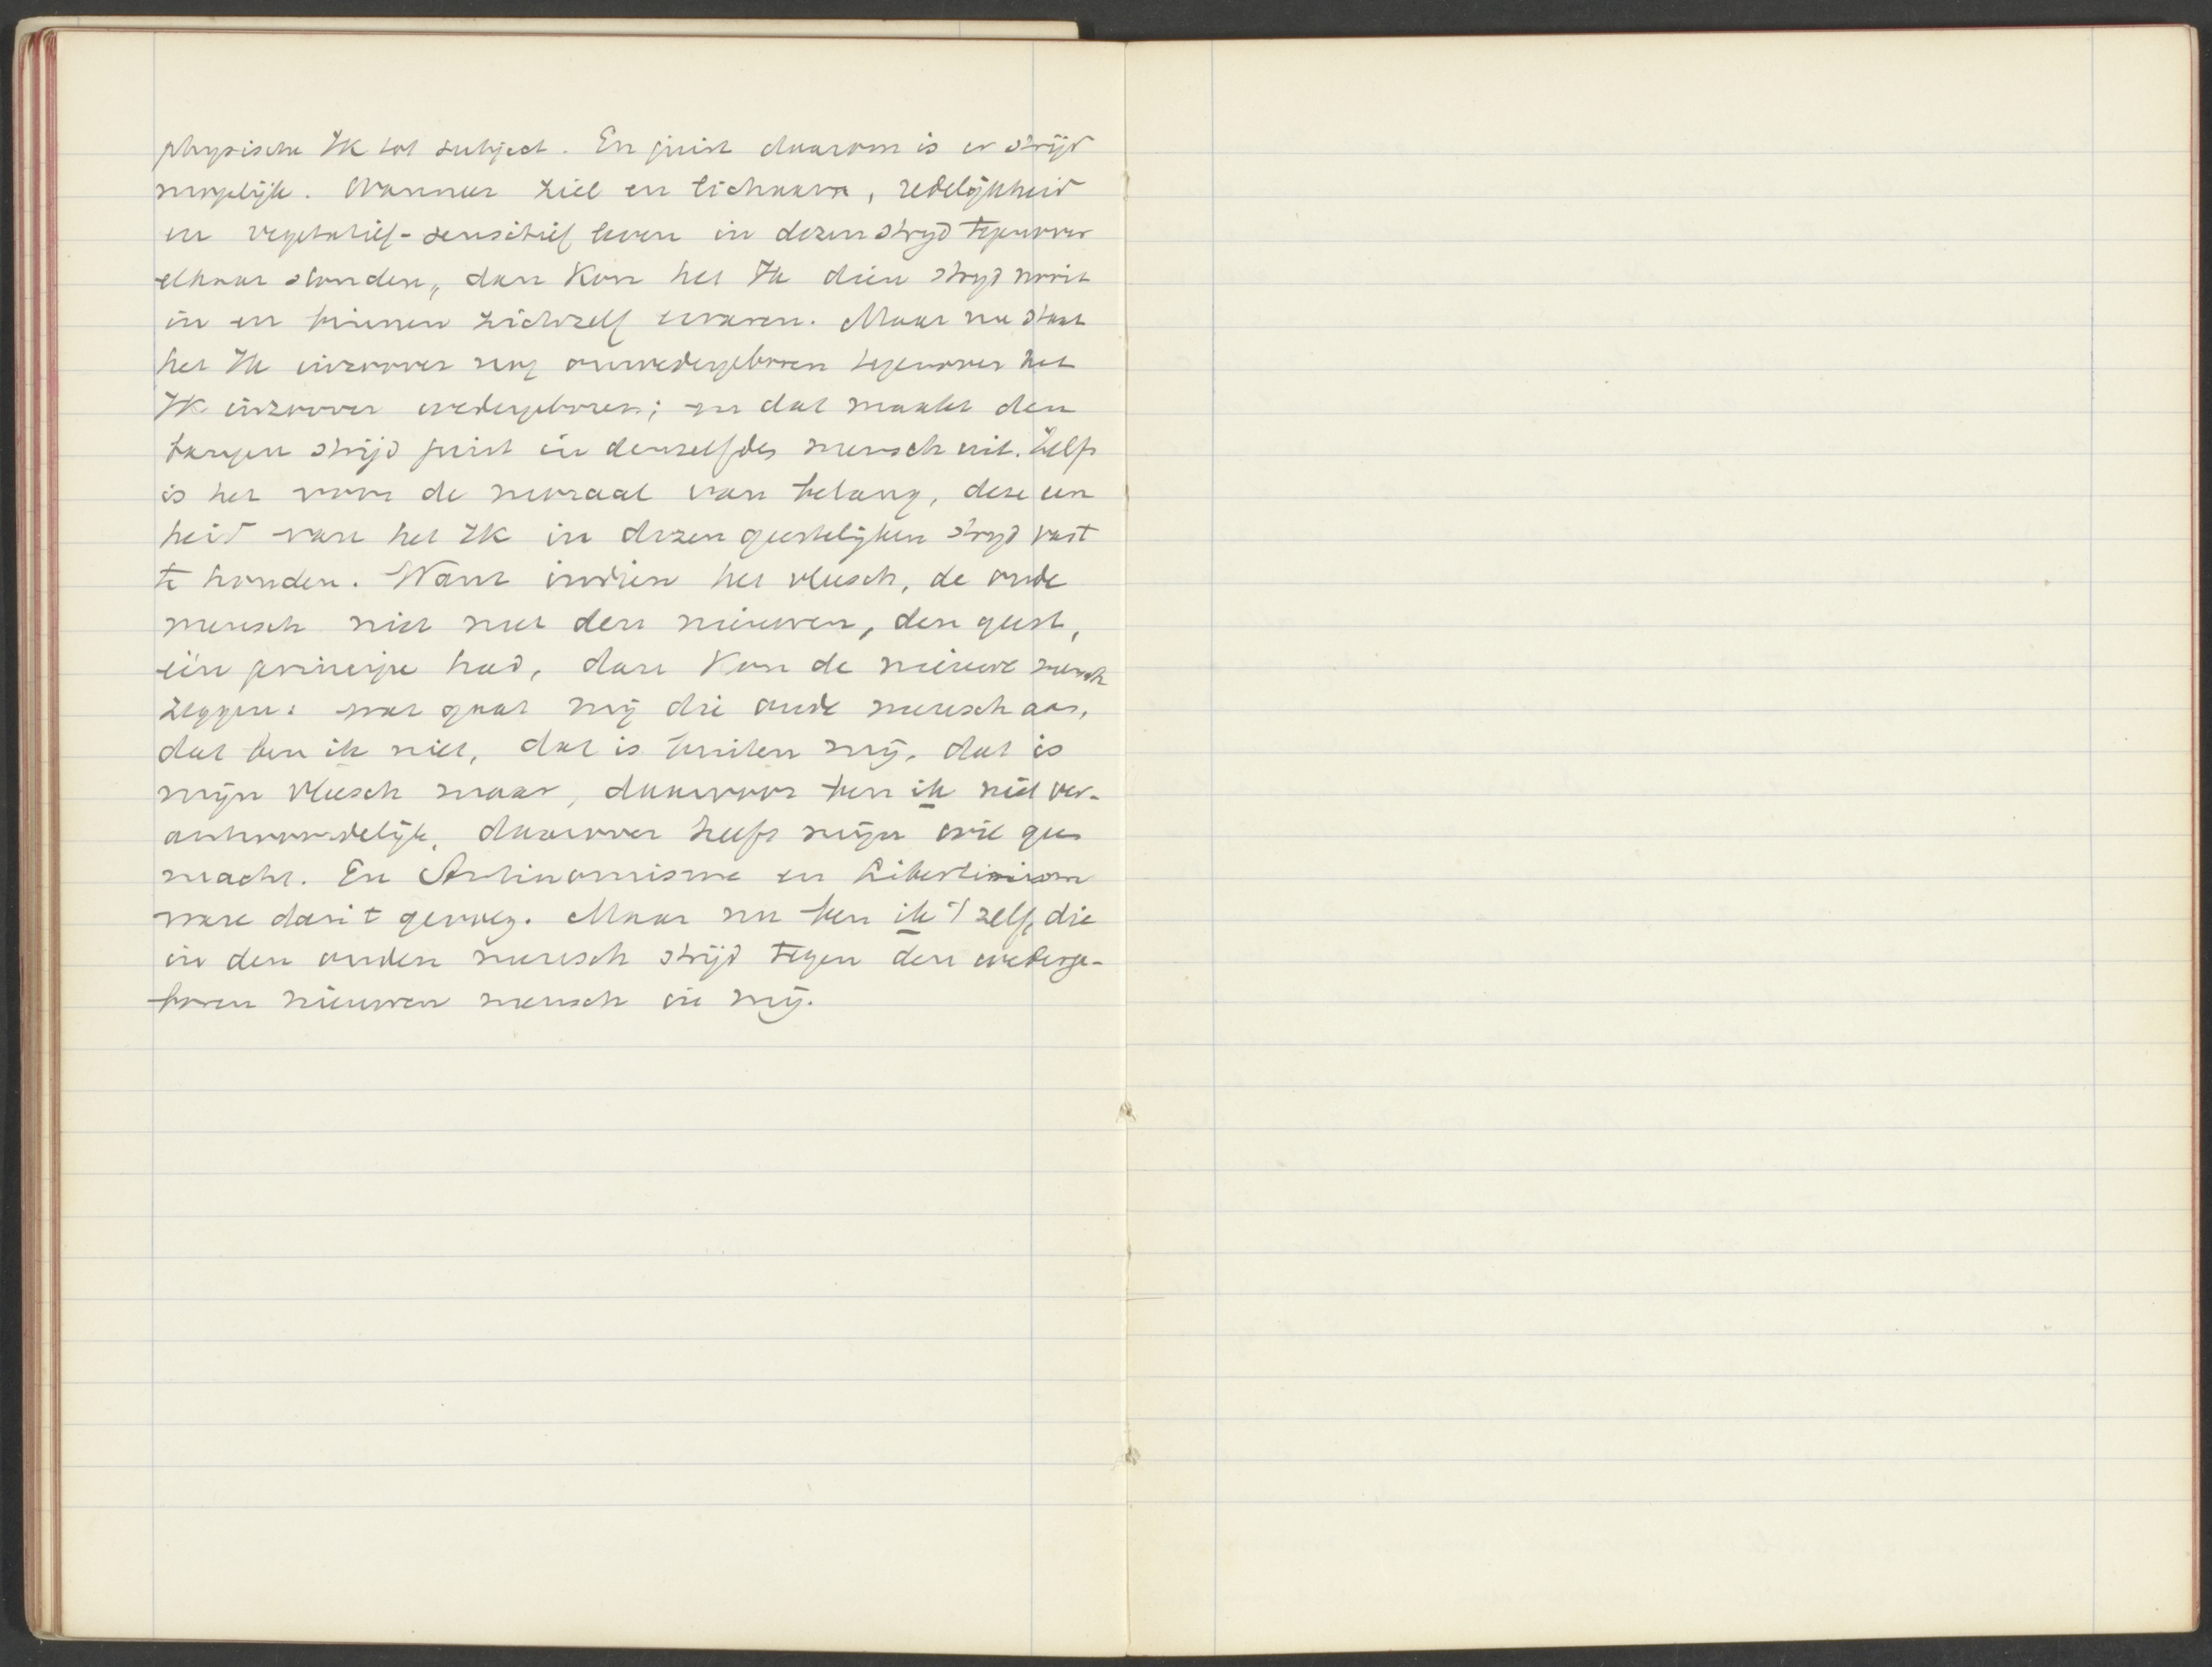 physische Ik tot subject. En juist daarom is er strijd
mogelijk. Wanneer ziel en lichaam, redelijkheid
en vegetatief-sensitief leven in dezen strijd tegenover
elkaar stonden, dan kon het Ik dien strijd nooit
in en binnen zichzelf ervaren. Maar nu staat
het Ik inzoover nog onwedergeboren tegenover het
Ik inzoover wedergeboren; en dat maakt den
bangen strijd juist in denzelfden mensch uit. Zelfs
is het voor de moraal van belang, deze een
heid van het Ik in dezen geestelijken strijd vast
te houden. Want indien het vleesch, de oude
mensch niet met den nieuwen, den geest,
één principe had, dan kon de nieuwe mensch
zeggen: wat gaat mij die oude mensch aan,
dat ben ik niet, dat is buiten mij, dat is
mijn vleesch maar, daarvoor ben ik niet ver-
antwoordelijk, daarover heeft mijn wil geen
macht. En Antinomisme en Libertinism
ware daar 't gevolg. Maar nu ben ik 't zelf, die
in den ouden mensch strijd tegen den wederge-
boren nieuwen mensch in mij.